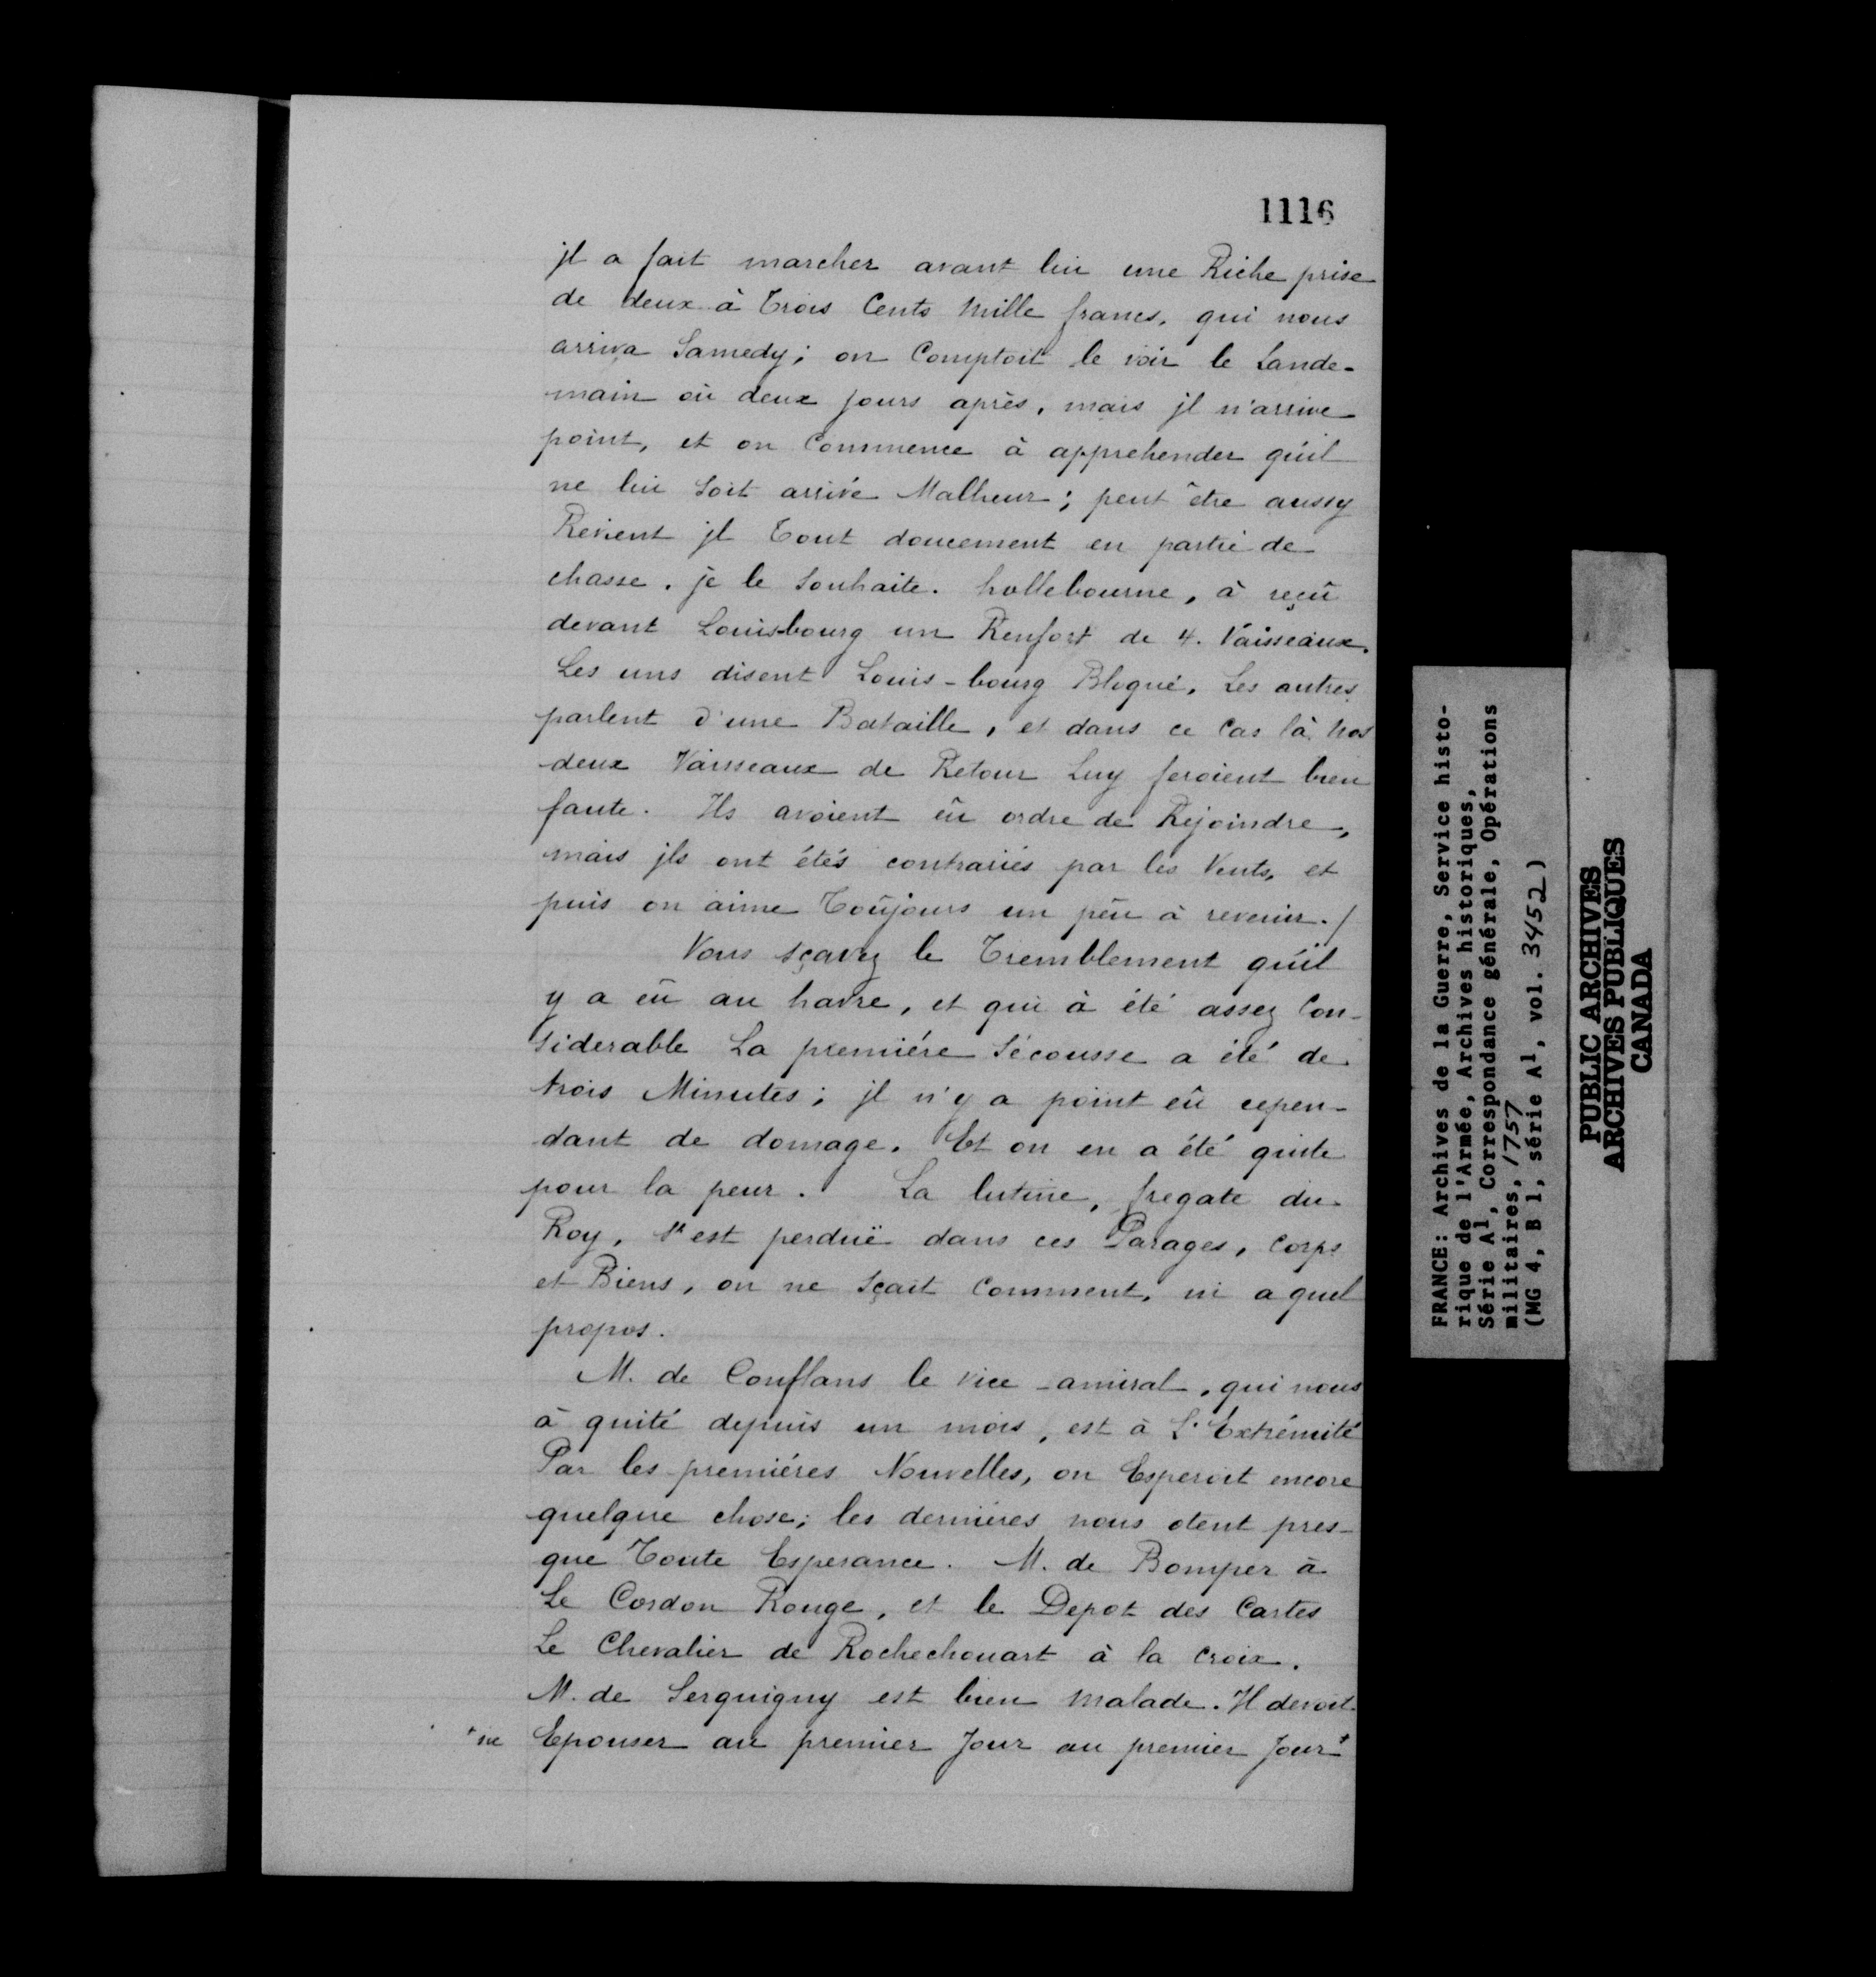 1116
jl a fait marcher avant lui une Riche prise
de deux à Trois Cents Mille francs, qui nous
arriva Samedy; on Comptoit le voir le Lande-
main où deux jours après, mais jl n'arrive
point, et on Commence à apprehender qu'il
ne lui soit arrivé Malheur; peut être aussy
Revient jl Tout doucement en partie de
chasse. je le Souhaite. hollebourne, à reçû
devant Louisbourg un Renfort de 4. Vaisseaux.
Les uns disent Louis-bourg Bloqué, Les autres
parlent d'une Bataille, et dans ce Cas là nos
deux Vaisseaux de Retour Luy feroient bien
faute. Ils avoient eû ordre de Rejoindre,
mais jls ont étés contrariés par les Vents, et
puis on aime Toûjours un peu à revenir./
Vous sçavez le Tremblement qu'il
y a eû au havre, et qui à été assez Con-
siderable La premiére Sécousse a été de
trois Minutes; jl n'y a point eû cepen-
dant de domage. Et on en a été quite
pour la peur. La lutine, fregate du
Roy, s'est perduë dans ces Parages, Corps
et Biens, on ne Sçait Comment, ni a quel
propos.
M. de Conflans le vice-amiral, qui nous
à quité depuis un mois, est à L'Extrémité
Par les premiéres Nouvelles, on Esperoit encore
quelque chose; les derniéres nous otent pres-
que Toute Esperance. M. de Bomper à
Le Cordon Rouge, et le Depot des Cartes
Le Chevalier de Rochechouart à la Croix.
M. de Serquigny est bien Malade. Il devoit
+ ne Epouser au premier Jour au premier Jour +
FRANCE: Archives de la Guerre, Service histo-
rique de l'Armée, Archives historiques,
Série A1, Correspondance générale, Opérations
militaires, 1757
(MG 4, B 1, série A1, vol. 3452)
PUBLIC ARCHIVES
ARCHIVES PUBLIQUES
CANADA